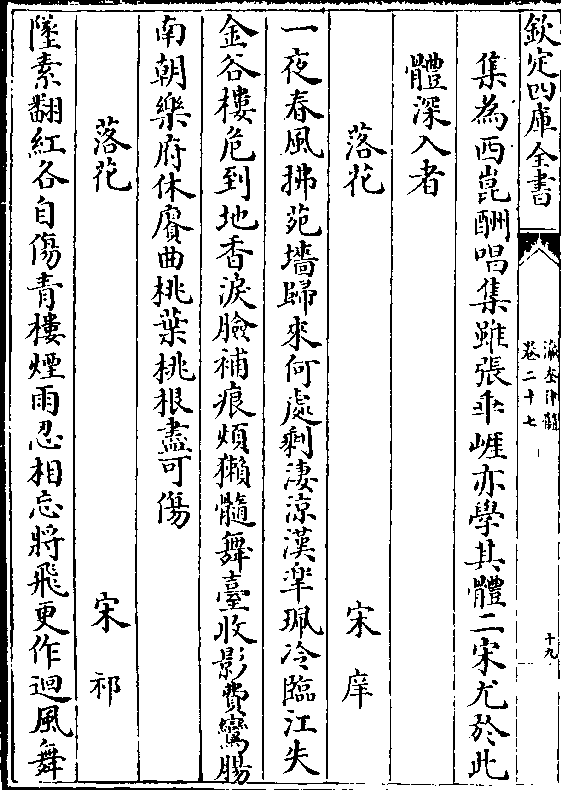 欽定四庫全書
瀛奎律髓
卷二十七
十九
集為西崑酬唱集雖張乖崖亦學其體二宋尤於此
體深入者
落花 宋庠
一夜春風拂苑墻歸來何處剩淒涼漢臯珮冷臨江失
金谷樓危到地香淚臉補痕煩獺髓舞臺收影費鸞腸
南朝樂府休賡曲桃葉桃根盡可傷
落花 宋祁
墜素翻紅各自傷青樓煙雨忍相忘將飛更作迴風舞